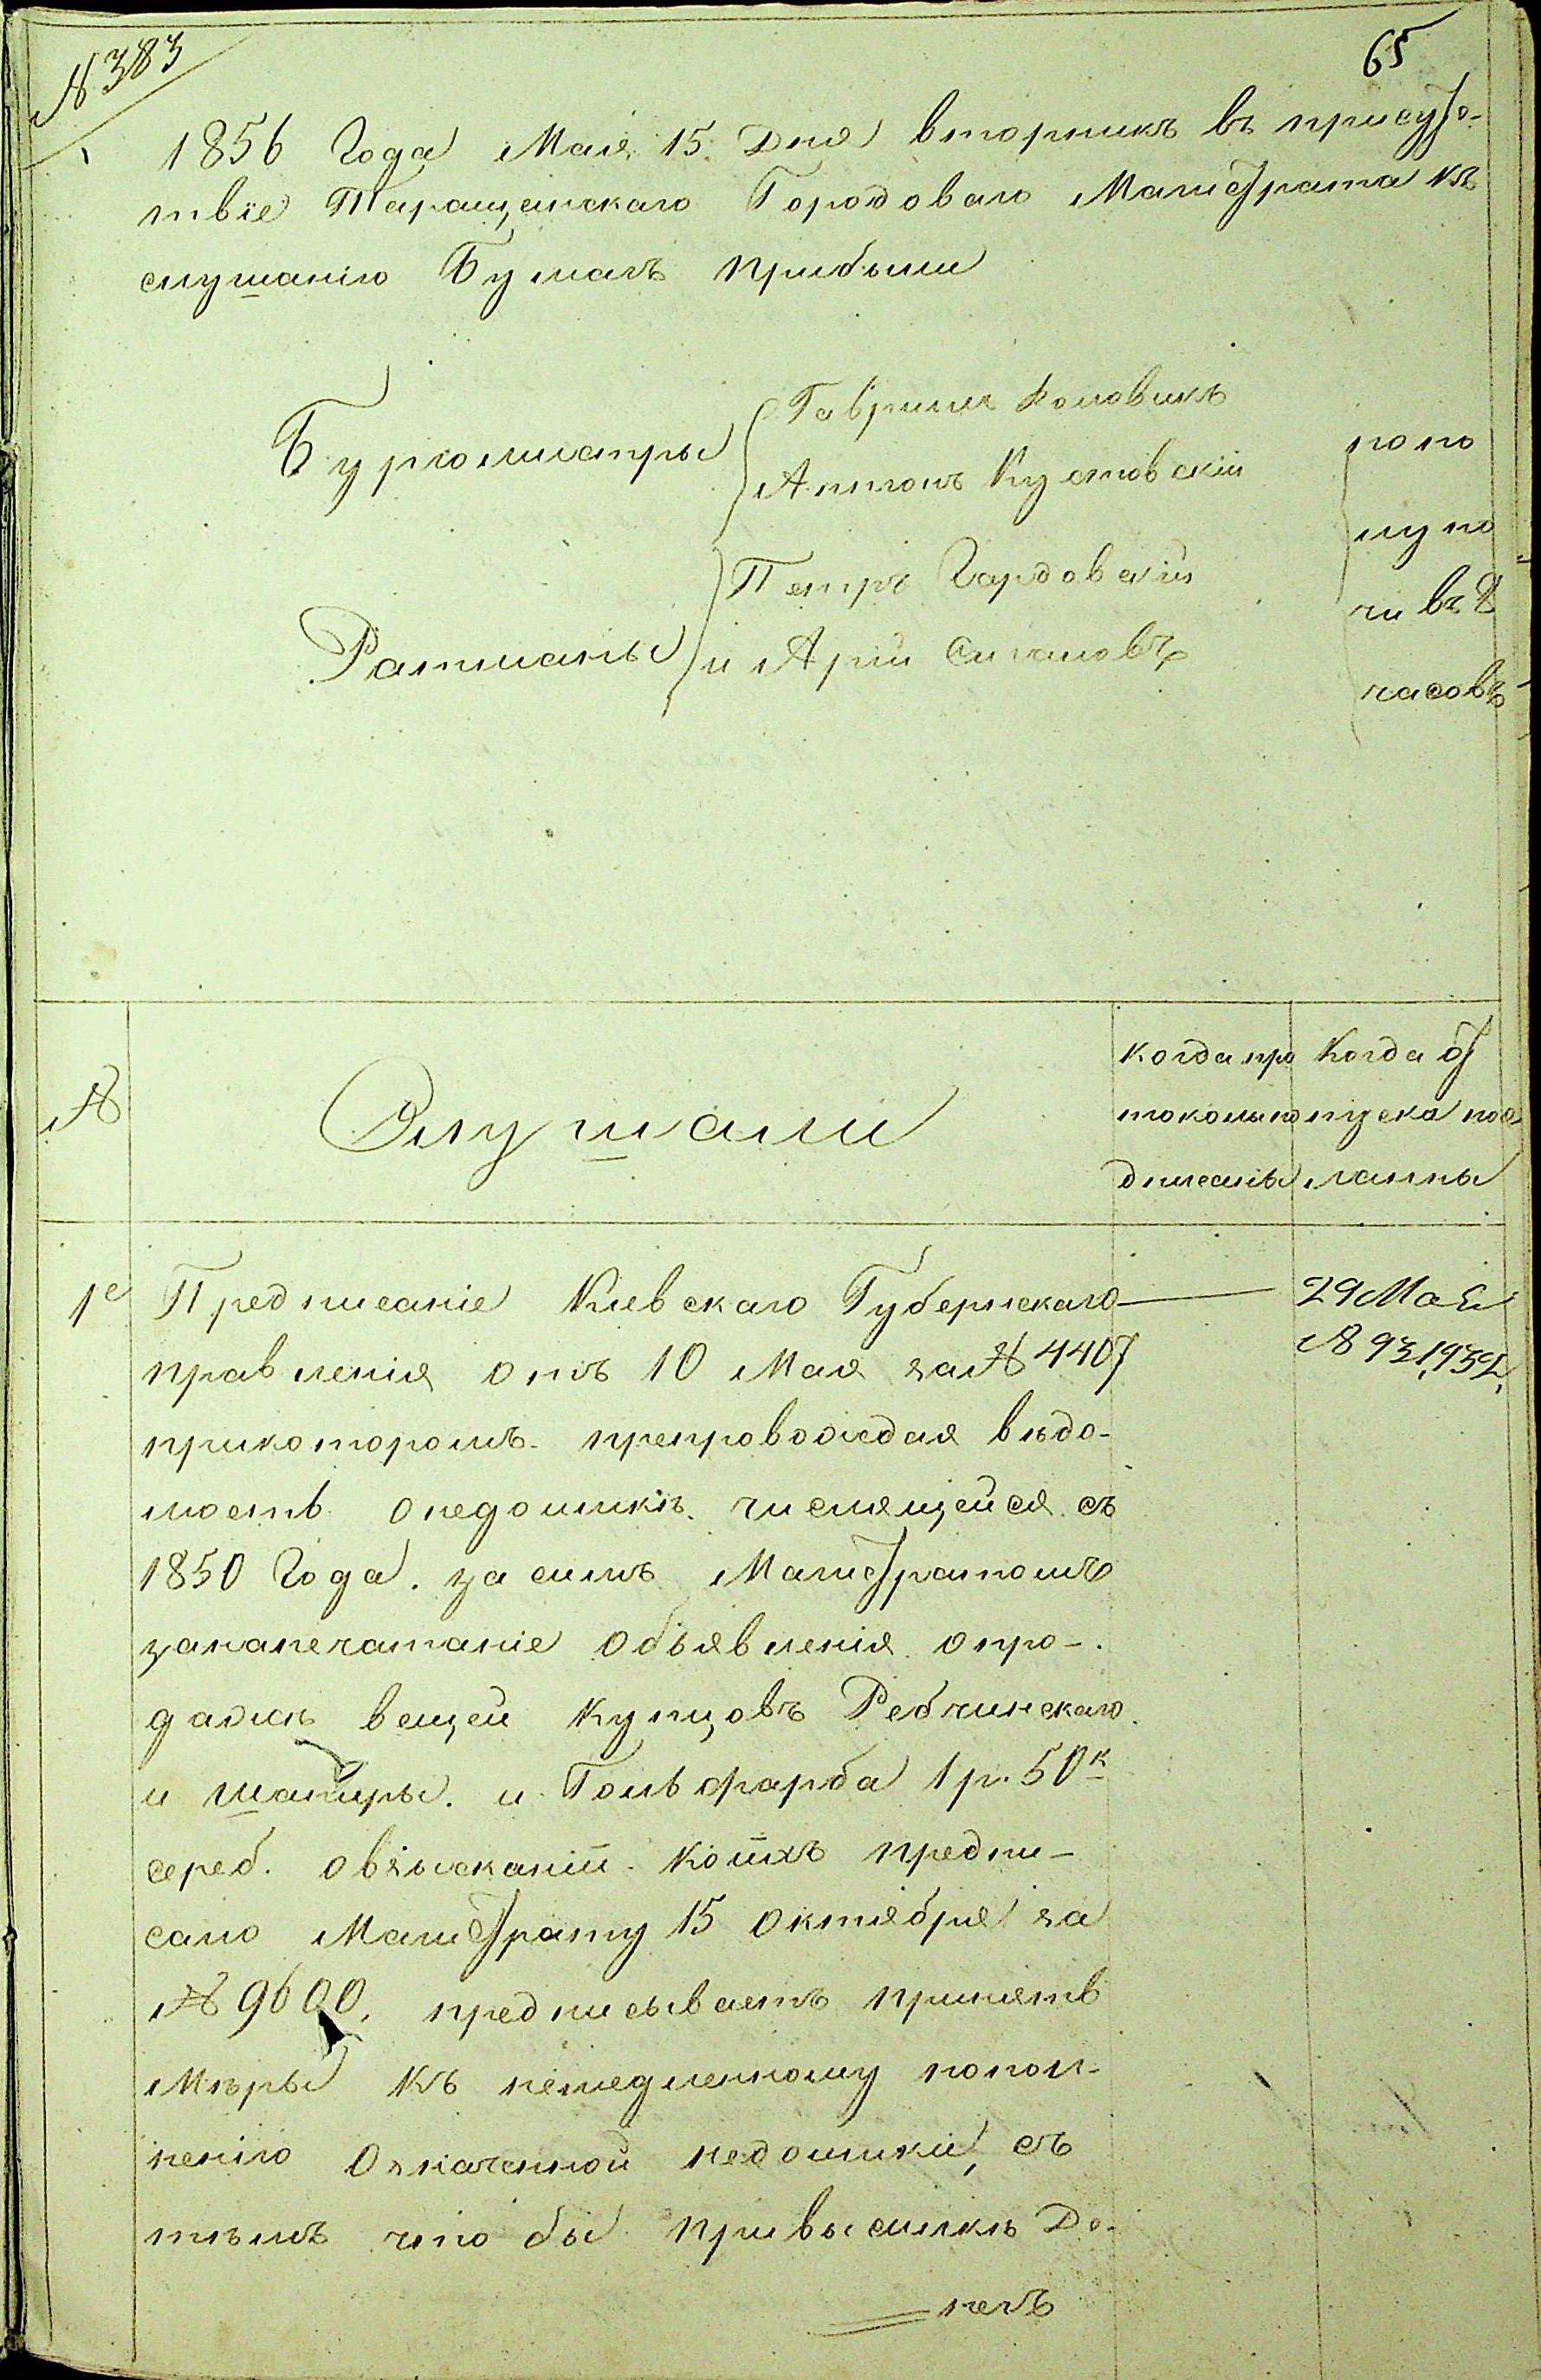 № 383
65
1856 Года Мая 15 Дня вторникъ въ присутс-
твіе Таращанскаго Городоваго Магистрата къ
слушанію Бумагъ прибыли
Бургомистры
Гаврило Коновикъ
Антонъ Кустовскій
Ратманы
Петръ Гардовскій
и Арій
попо
лу но
чи въ 9
часовъ
№
Слушали
Когда про
токолы по
дписаны
Когда от
пуска пос
ланны
1е Предписаніе Кіевскаго Губернскаго
правленія отъ 10 Мая за № 4407
прикоторомъ препровождая вѣдо-
мость онедоимкѣ числящейся съ
1850 Года за симъ Магистратомъ
занапечатаніе объявленія опро-
дажѣ вещей Купцовъ Ребчинскаго
и Шапиры и Гольдфарба 1 р. 50 к
сереб. овзысканіи коихъ предпи-
сано Магистрату 15 Октября за
№ 9600, предписываетъ принять
Мѣры къ немедленному попол-
ненію Означенной недоимки, съ
тѣмъ что бы привысылкѣ Де-
негъ
29 Мая
№ 931,932,